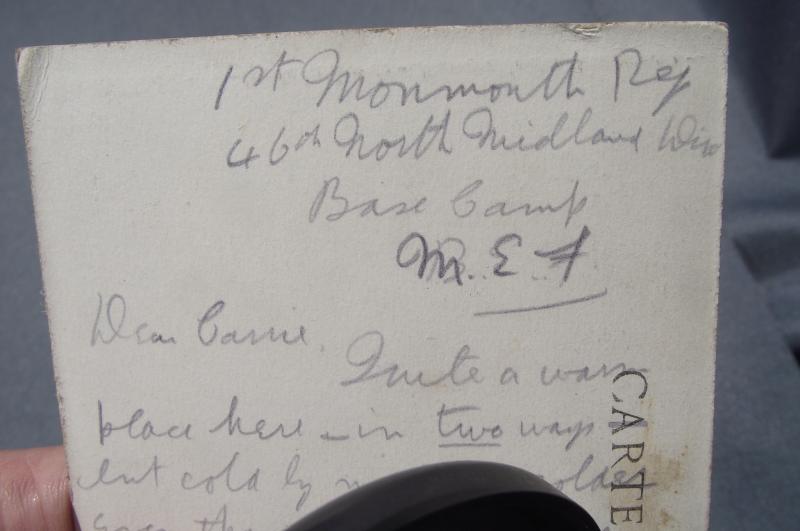 1st Monmouth Reg
46th North Midland Div
Base Camp
M. E F
Dear Carrie.
Quite a warm
place here - in two ways
but cold by
CARTE